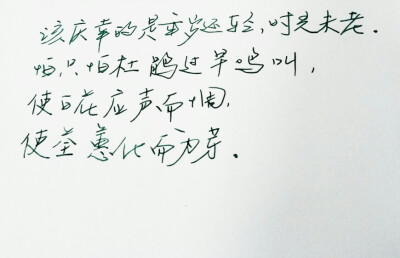 该庆幸的是年岁还轻，时光未老．
怕只怕杜鹃过早鸣叫，
使百花应声而凋，
使荃蕙化而为芽．